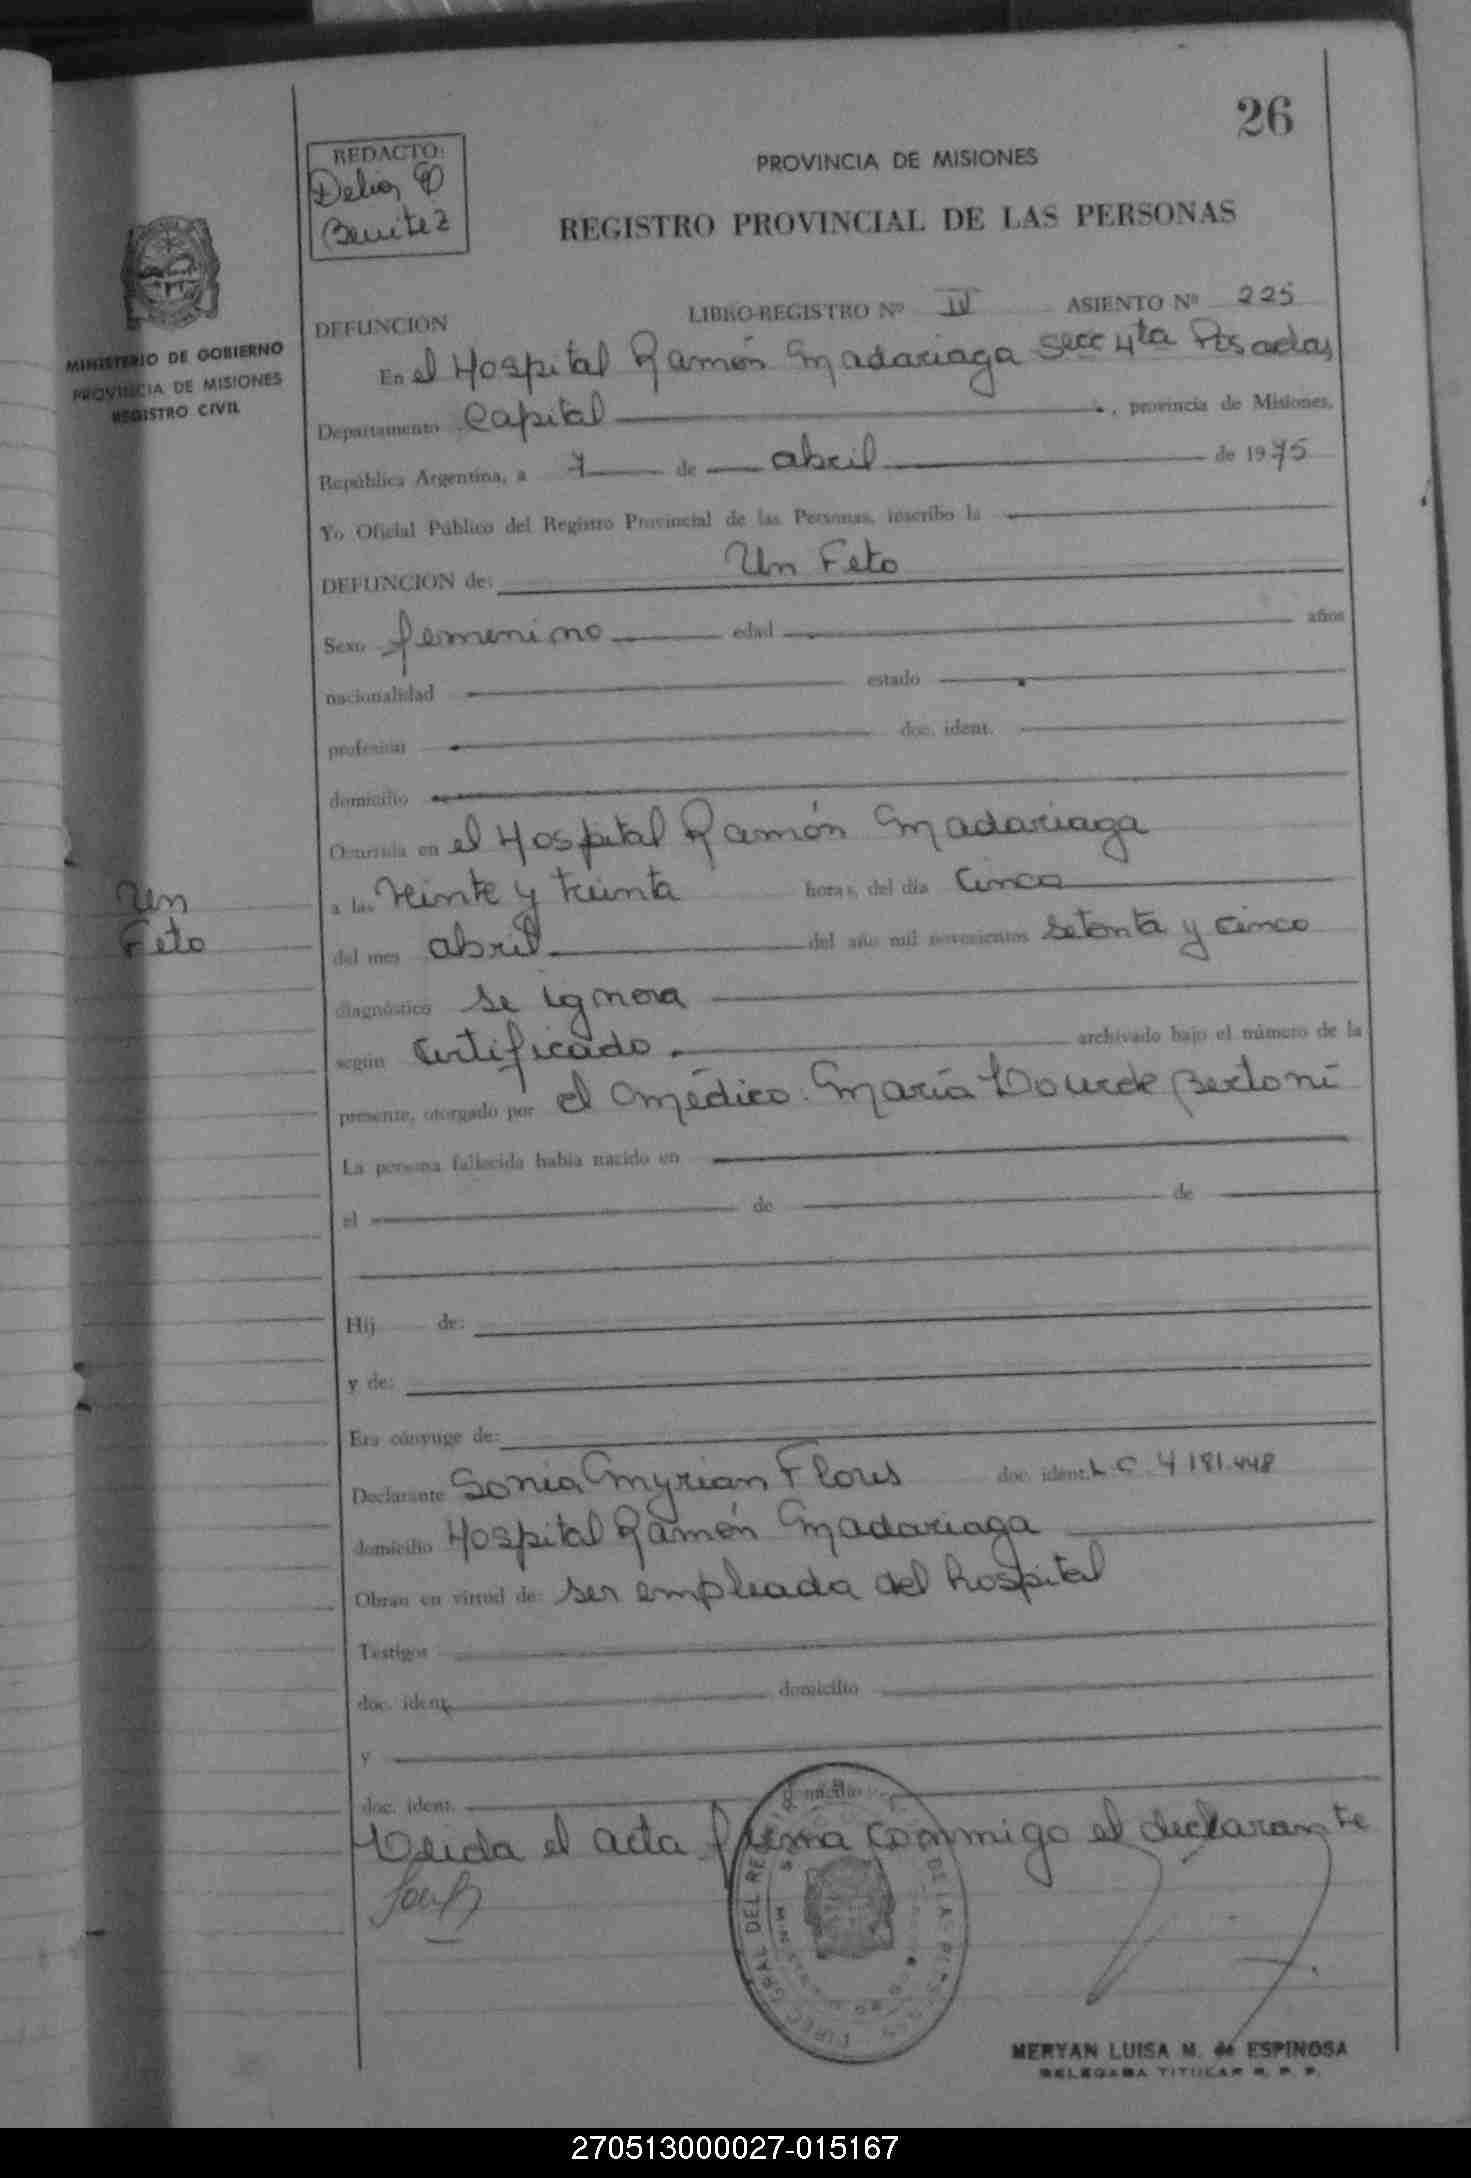 26
REDACTO:
Delia
Benitez
PROVINCIA DE MISIONES
REGISTRO PROVINCIAL DE LAS PERSONAS
MINISTERIO DE GOBIERNO
PROVINCIA DE MISIONES
REGISTRO CIVIL
DEFUNCION LIBRO-REGISTRO Nº IV ASIENTO Nº 225
En el Hospital Ramón Madariaga secc 4ta Posadas
Departamento Capital , provincia de Misiones,
República Argentina, a 7 de abril de 1975
Yo Oficial Público del Registro Provincial de las Personas, inscribo la
DEFUNCION de: Un Feto
Sexo femenino edad años
nacionalidad estado
profesión doc. ident.
domicilio
Ocurrida en el Hospital Ramón Madariaga
a las Veinte y treinta horas, del día Cinco
Un
Feto
del mes abril del año mil novecientos setenta y cinco
diagnóstico se ignora
según Certificado archivado bajo el número de la
presente, otorgado por el médico. María Lourde Bertoni
La persona fallecida había nacido en
el de de
Hij de:
y de:
Era cónyuge de:
Declarante Sonia Myrian Flores doc. ident. L.C. 4.181.448
domicilio Hospital Ramón Madariaga
Obran en virtud de: ser empleada del hospital
Testigos
doc. ident. domicilio
y
doc. ident. domicilio
Leida el acta firma conmigo el declarante
MERYAN LUISA M. de ESPINOSA
DELEGADA TITULAR R. P. P.
270513000027-015167